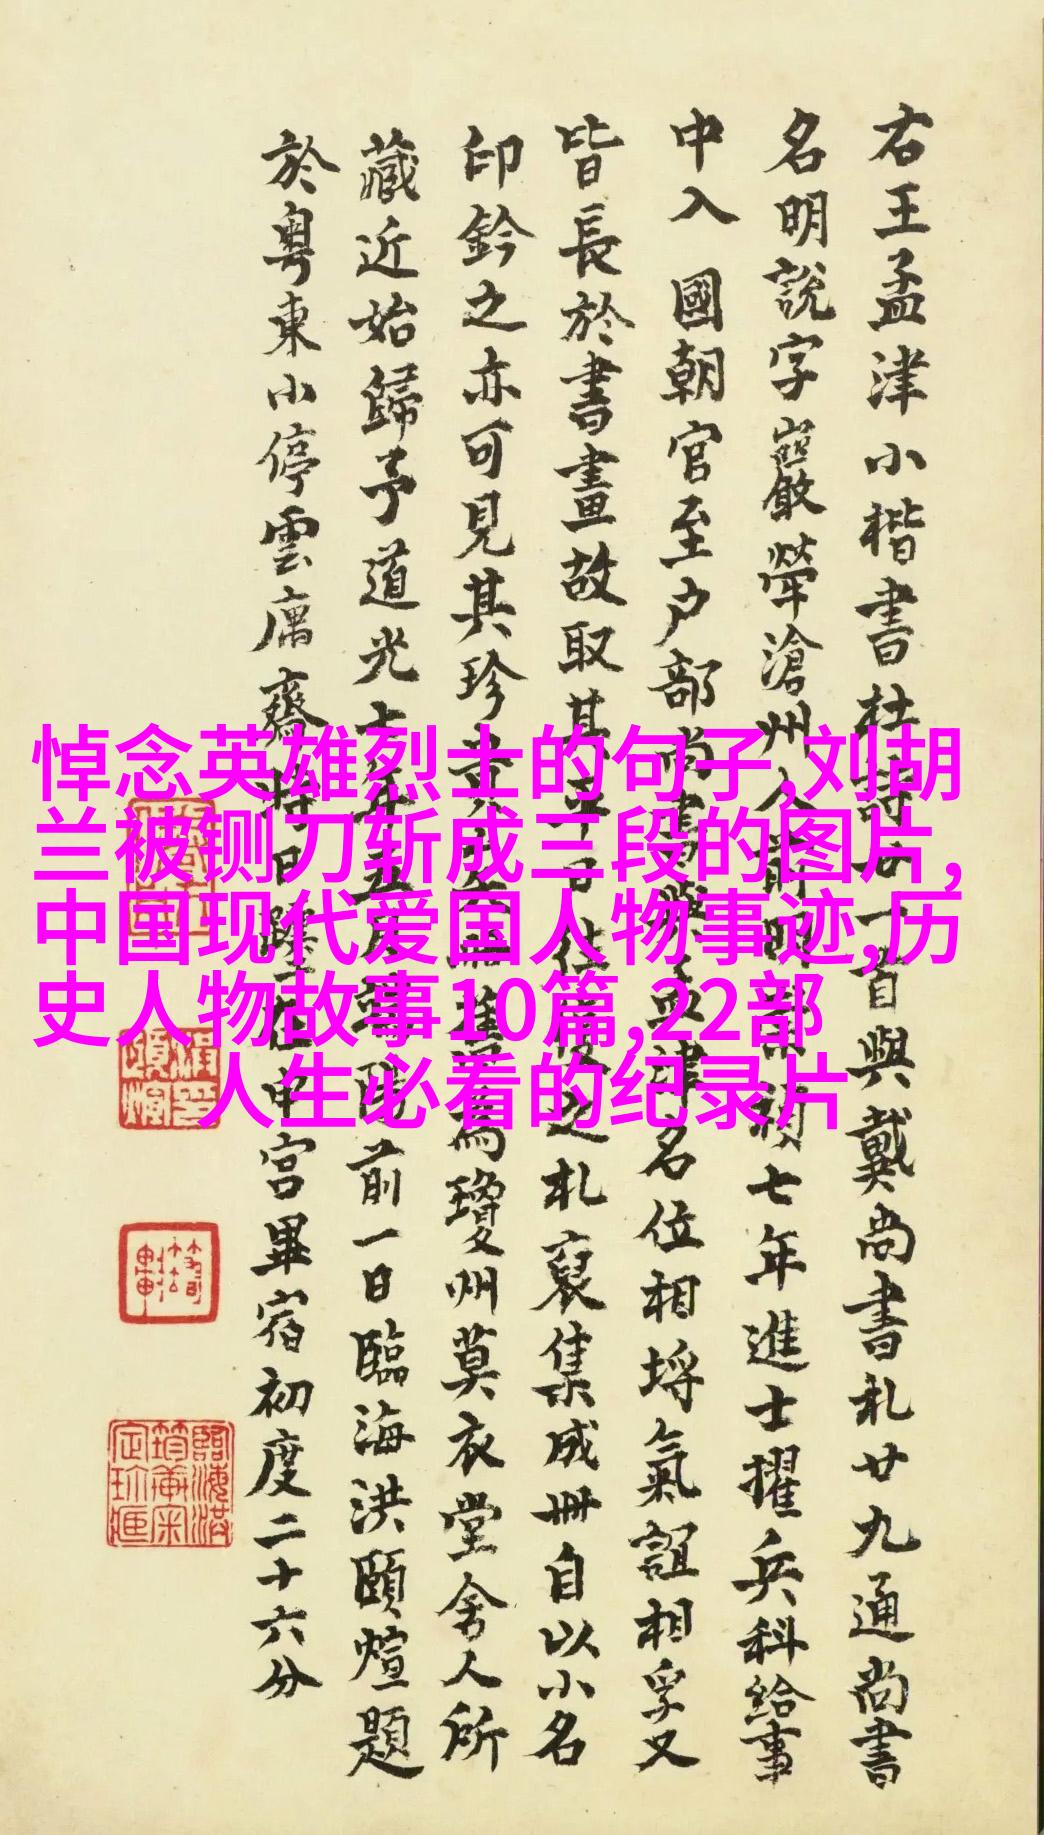 右王孟津小楷書杜詩一首與戴尚書札廿九通尚書
名明說字巖犖滄州人前明崇禎七年進士擢兵科給事
中入國朝官至户部尚書與孟津名位相埒氣誼相孚又
皆長於書畫故取其平日往復之札裒集成冊自以小名
印鈐之亦可見其珍為瓊州莫衣堂舍人所
藏近始歸予道光十五年五月前一日臨海洪頤煊題
於粵東小停雲庽齋時日躔在申宮畢宿初度二十六分
悼念英雄烈士的句子,刘胡
兰被铡刀斩成三段的图片,
中国现代爱国人物事迹,历
史人物故事10篇,22部
人生必看的纪录片